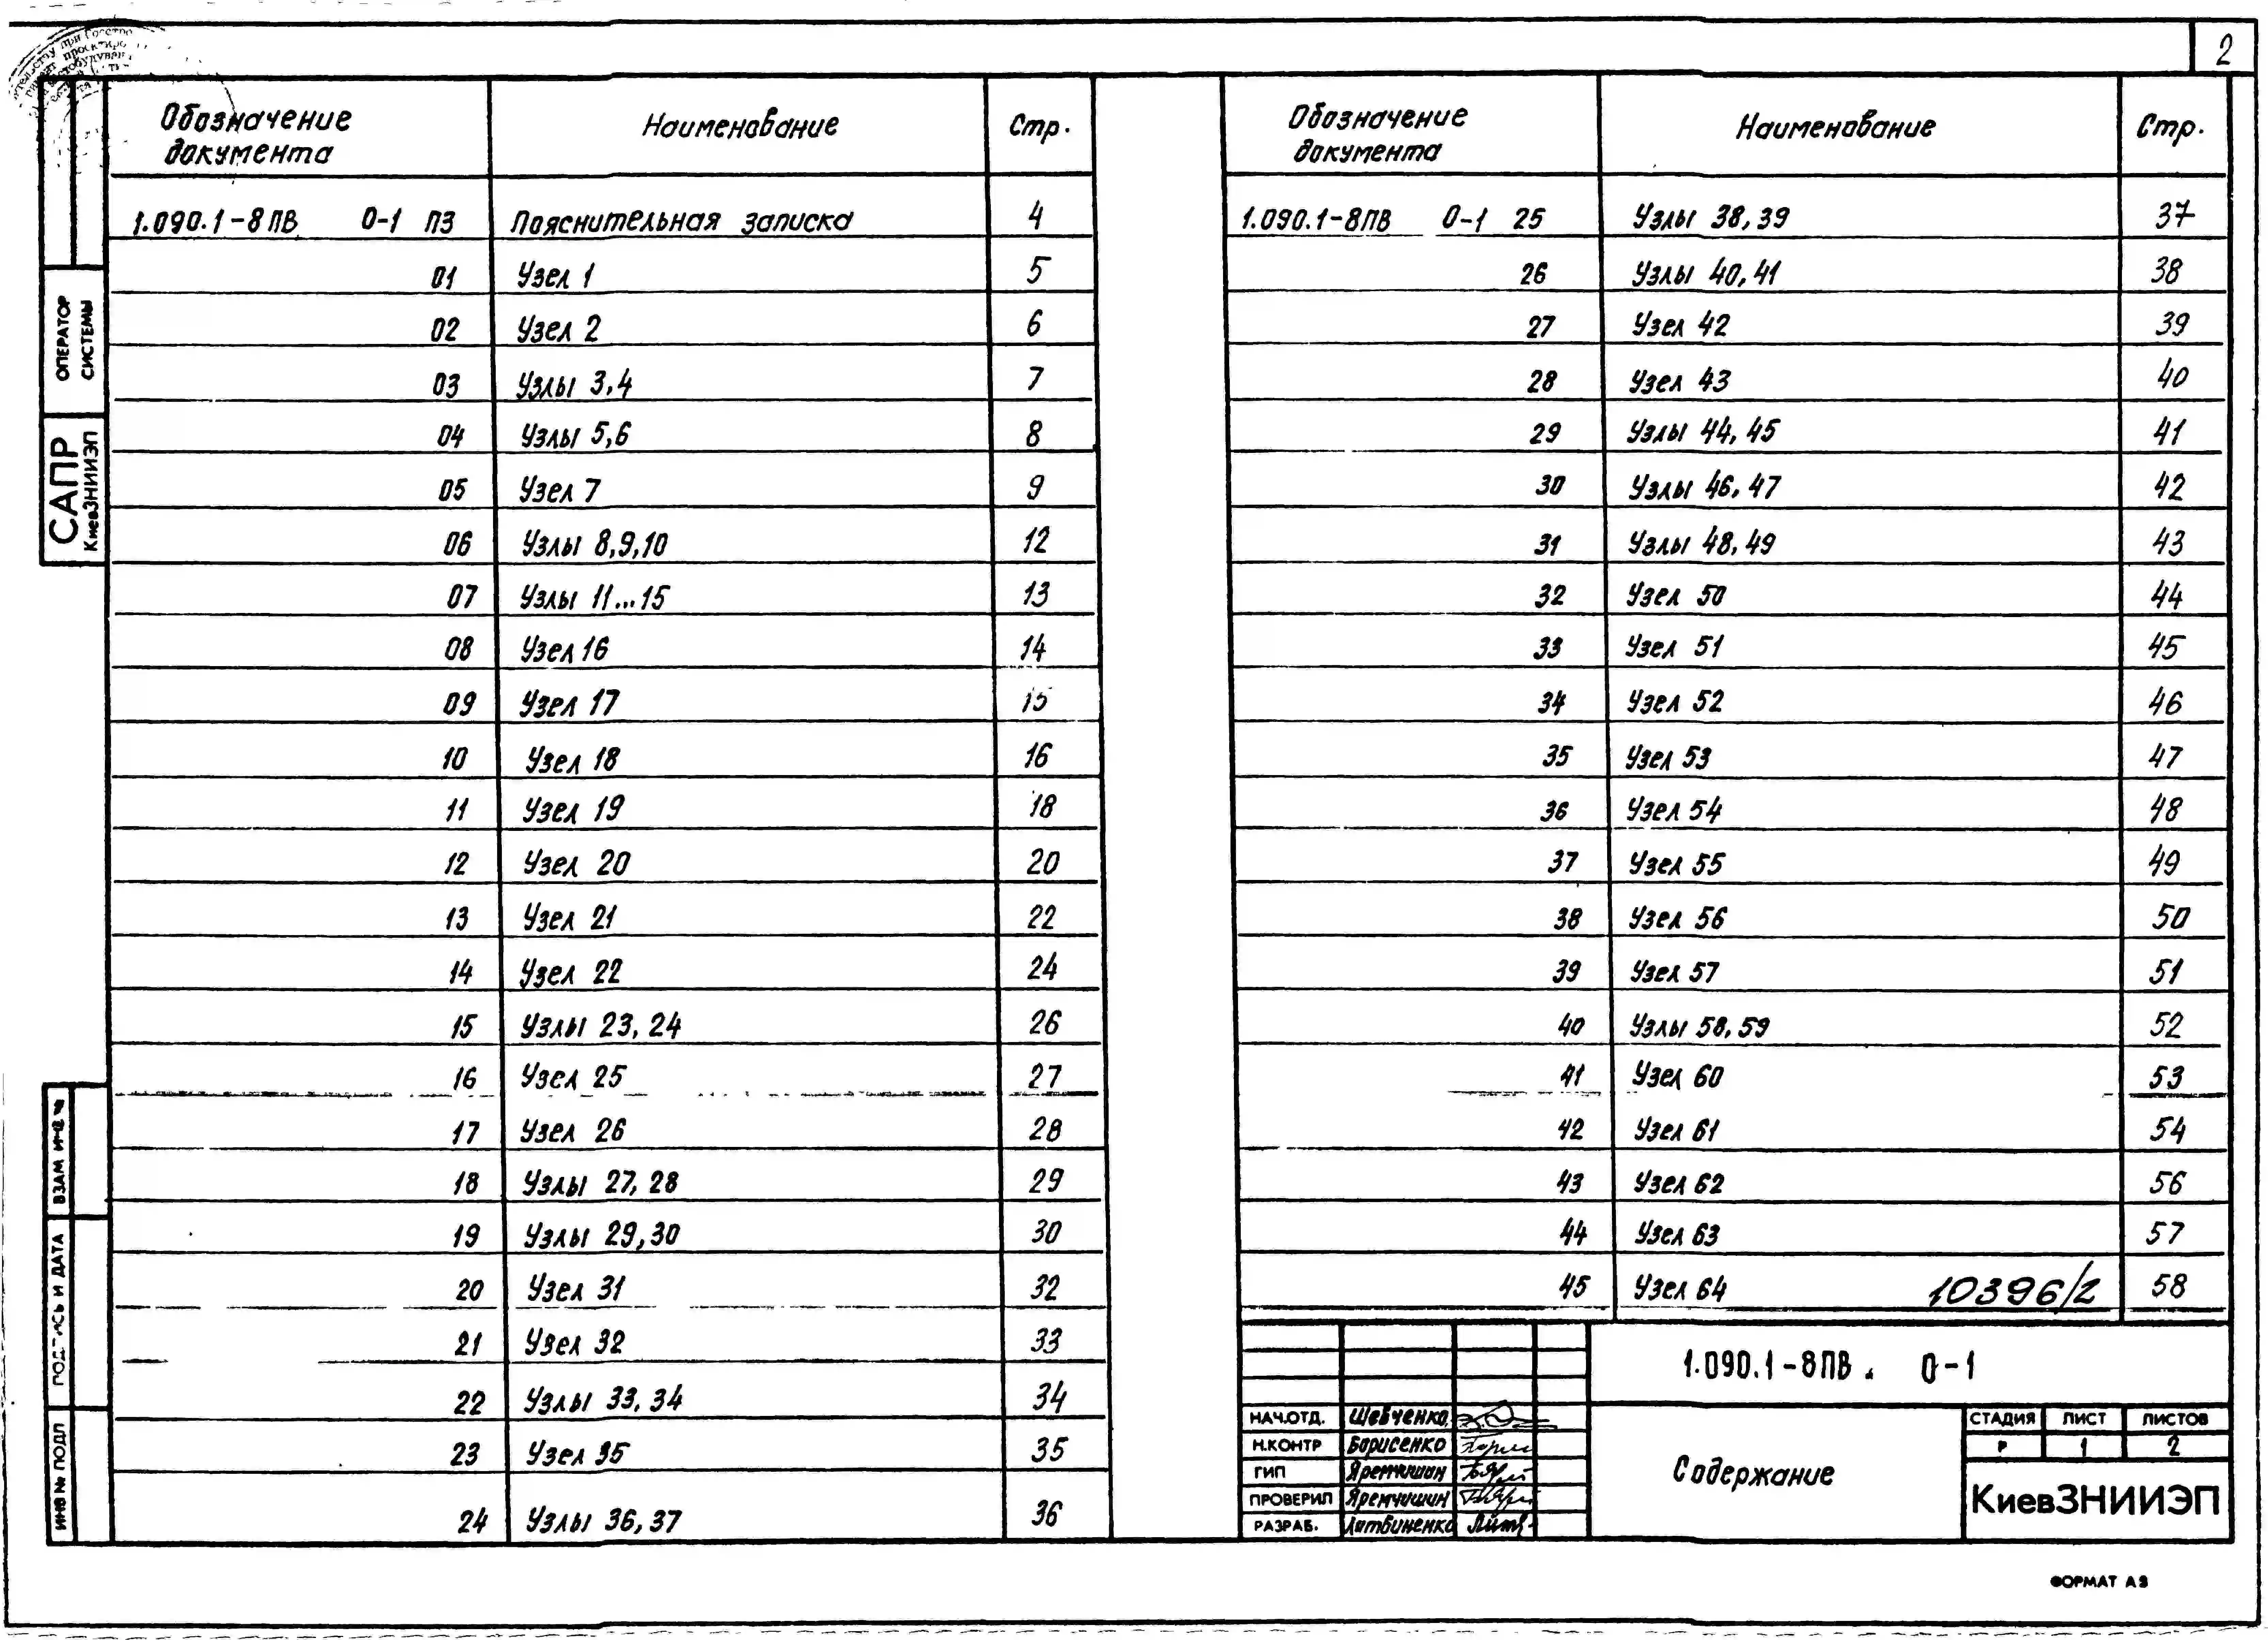 2
Обозначение документа Наименование Стр.
1.090.1-8ПВ 0-1 ПЗ Пояснительная записка 4
01 Узел 1 5
02 Узел 2 6
03 Узлы 3,4 7
04 Узлы 5,6 8
05 Узел 7 9
06 Узлы 8,9,10 12
07 Узлы 11...15 13
08 Узел 16 14
09 Узел 17 15
10 Узел 18 16
11 Узел 19 18
12 Узел 20 20
13 Узел 21 22
14 Узел 22 24
15 Узлы 23, 24 26
16 Узел 25 27
17 Узел 26 28
18 Узлы 27, 28 29
19 Узлы 29,30 30
20 Узел 31 32
21 Узел 32 33
22 Узлы 33, 34 34
23 Узел 35 35
24 Узлы 36, 37 36
Обозначение документа Наименование Стр.
1.090.1-8ПВ 0-1 25 Узлы 38, 39 37
26 Узлы 40, 41 38
27 Узел 42 39
28 Узел 43 40
29 Узлы 44, 45 41
30 Узлы 46, 47 42
31 Узлы 48, 49 43
32 Узел 50 44
33 Узел 51 45
34 Узел 52 46
35 Узел 53 47
36 Узел 54 48
37 Узел 55 49
38 Узел 56 50
39 Узел 57 51
40 Узлы 58, 59 52
41 Узел 60 53
42 Узел 61 54
43 Узел 62 56
44 Узел 63 57
45 Узел 64 10396/2 58
1.090.1-8ПВ. 0-1
НАЧ.ОТД. Шевченко
Н.КОНТР Борисенко
ГИП Яремчишин
ПРОВЕРИЛ Яремчишин
РАЗРАБ. Литвиненко
Содержание
СТАДИЯ ЛИСТ ЛИСТОВ
Р 1 2
КиевЗНИИЭП
ФОРМАТ А3
ОПЕРАТОР
СИСТЕМЫ
САПР
КиевЗНИИЭП
ВЗАМ ИНВ №
ПОДПИСЬ И ДАТА
ИНВ № ПОДЛ